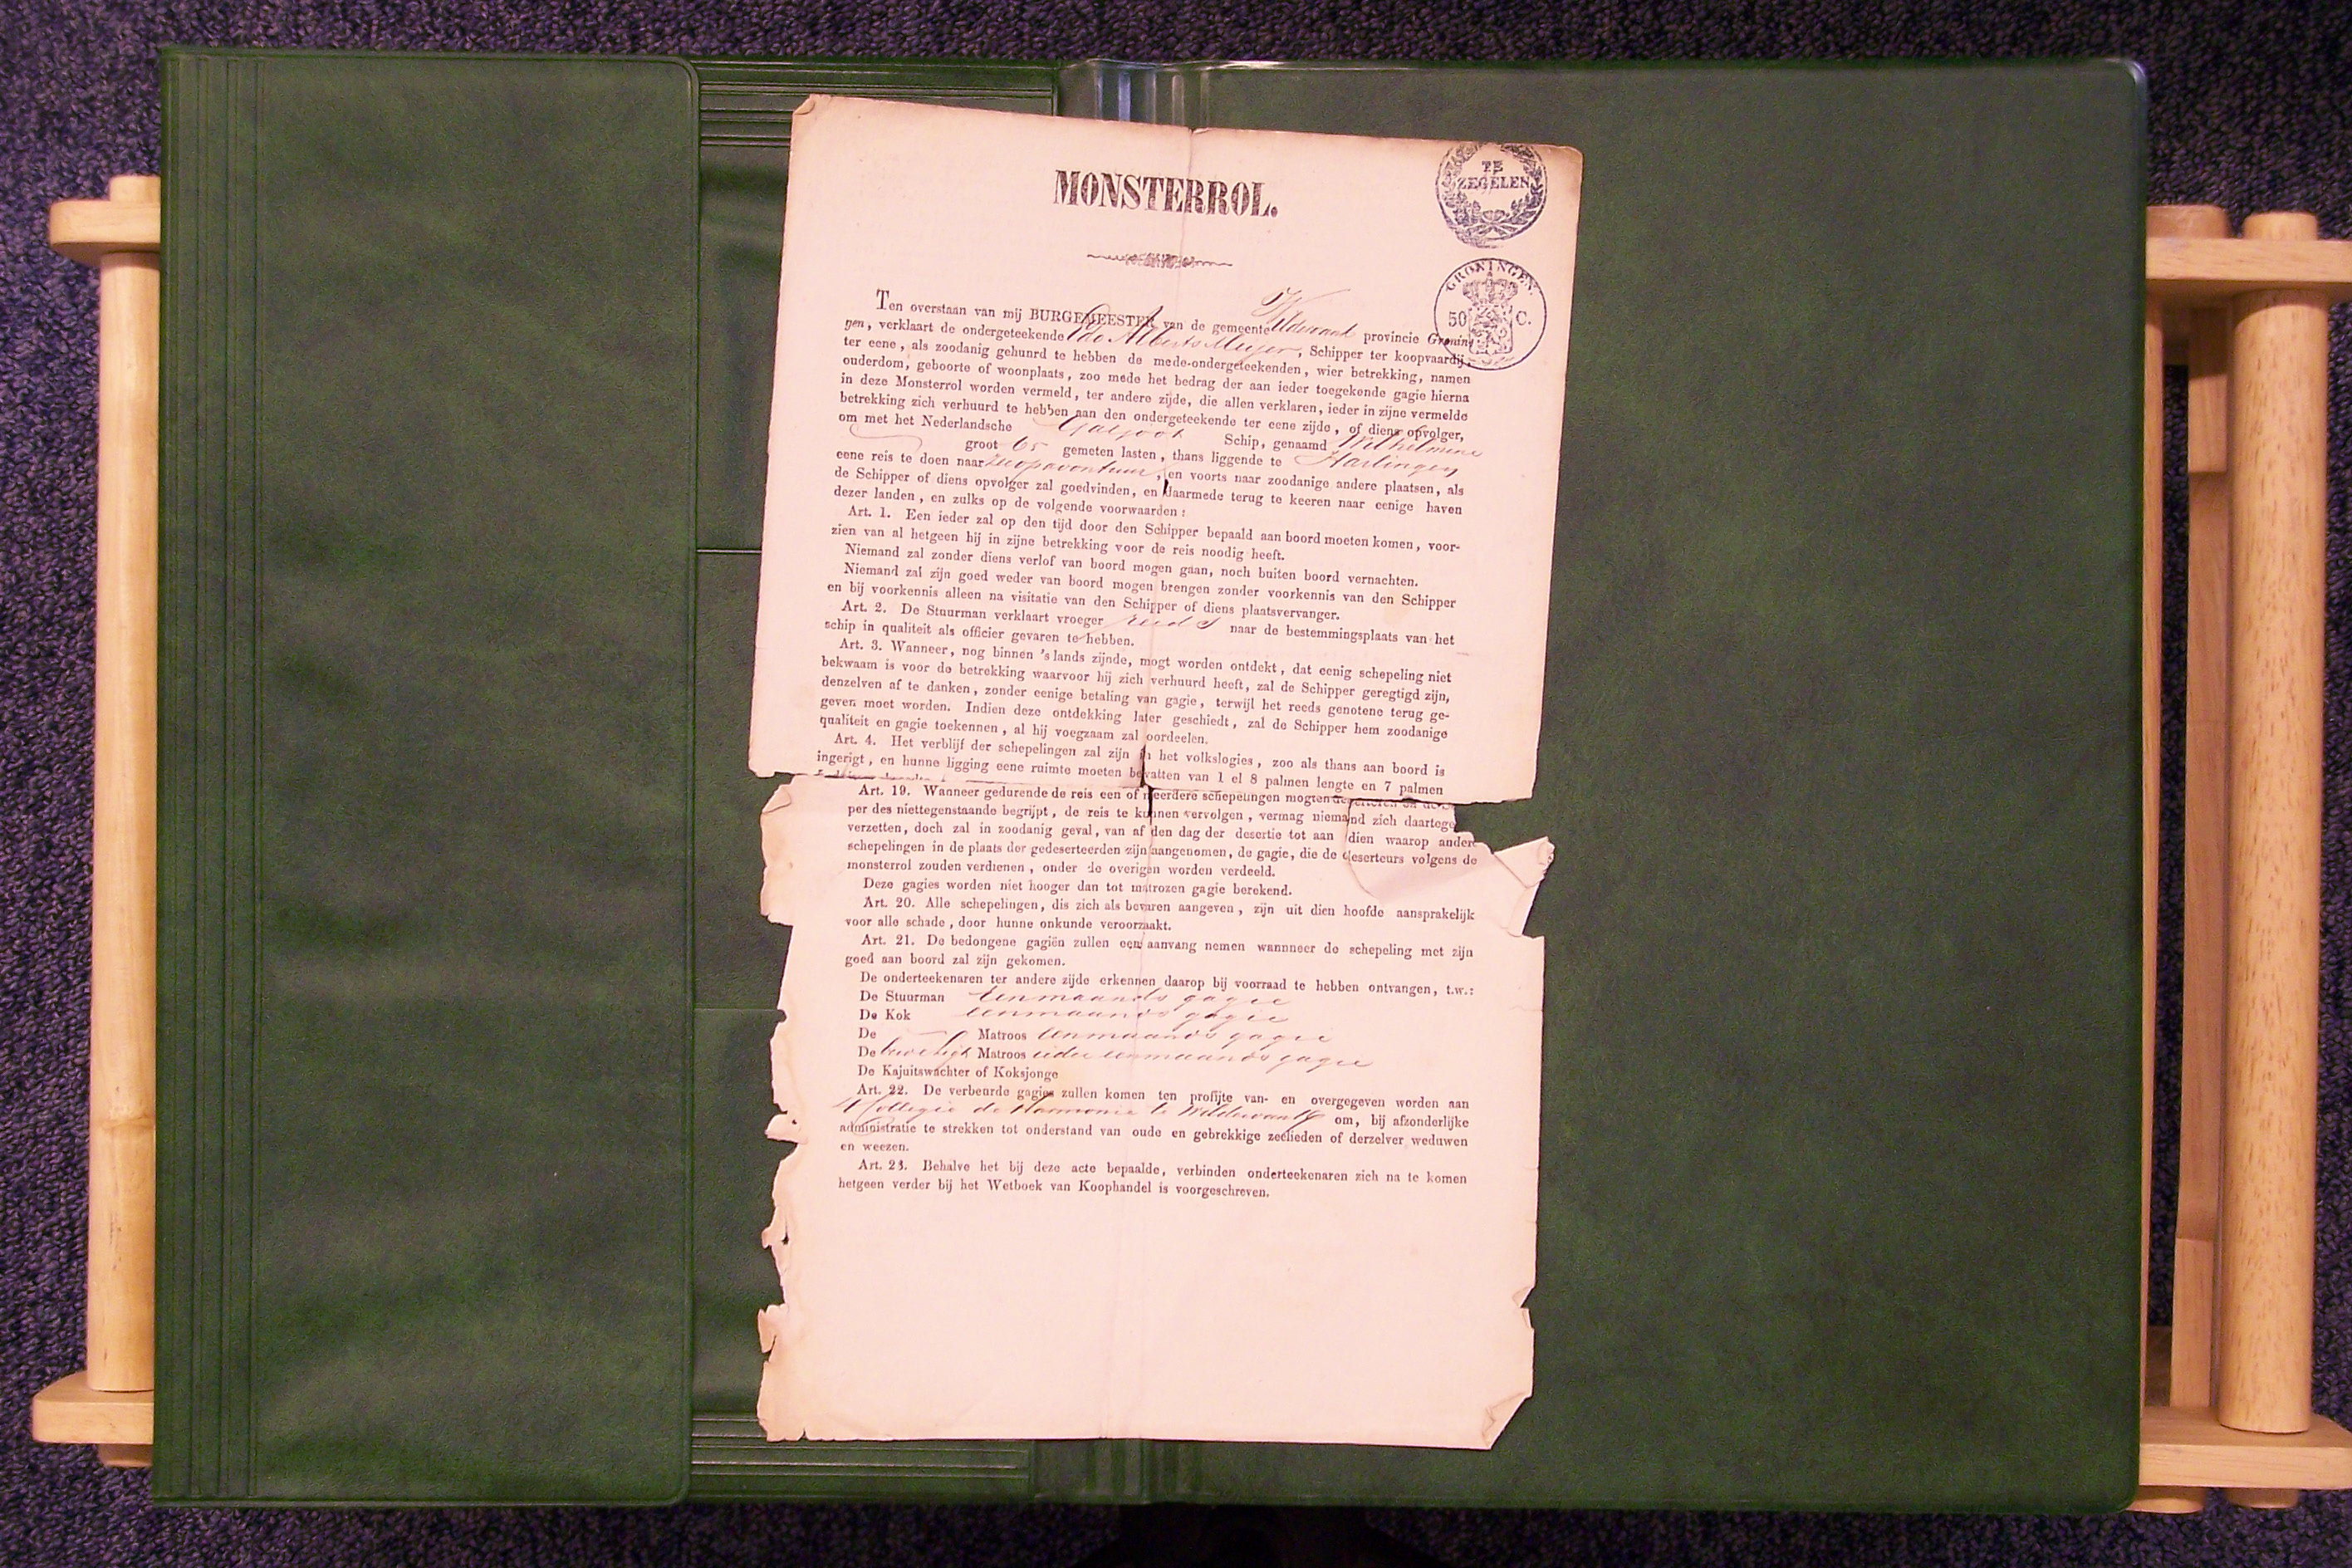 MONSTERROL.
TE
ZEGELEN
GRONINGEN.
50 C.
Ten overstaan van mij BURGEMEESTER van de gemeente Wildervank provincie Gronin
gen, verklaart de ondergeteekende Edo Alberts Meijer, Schipper ter koopvaardij,
ter eene, als zoodanig gehuurd te hebben de mede-ondergeteekenden, wier betrekking, namen
ouderdom, geboorte of woonplaats, zoo mede het bedrag der aan ieder toegekende gagie hierna
in deze Monsterrol worden vermeld, ter andere zijde, die allen verklaren, ieder in zijne vermelde
betrekking zich verhuurd te hebben aan den ondergeteekende ter eene zijde, of diens opvolger,
om met het Nederlandsche Galjoot Schip, genaamd Wilhelmina
groot 65 gemeten lasten, thans liggende te Harlingen
eene reis te doen naar zee op avontuur, en voorts naar zoodanige andere plaatsen, als
de Schipper of diens opvolger zal goedvinden, en daarmede terug te keeren naar eenige haven
dezer landen, en zulks op de volgende voorwaarden:
Art. 1. Een ieder zal op den tijd door den Schipper bepaald aan boord moeten komen, voor-
zien van al hetgeen hij in zijne betrekking voor de reis noodig heeft.
Niemand zal zonder diens verlof van boord mogen gaan, noch buiten boord vernachten.
Niemand zal zijn goed weder van boord mogen brengen zonder voorkennis van den Schipper
en bij voorkennis alleen na visitatie van den Schipper of diens plaatsvervanger.
Art. 2. De Stuurman verklaart vroeger reeds naar de bestemmingsplaats van het
schip in qualiteit als officier gevaren te hebben.
Art. 3. Wanneer, nog binnen 's lands zijnde, mogt worden ontdekt, dat eenig schepeling niet
bekwaam is voor de betrekking waarvoor hij zich verhuurd heeft, zal de Schipper geregtigd zijn,
denzelven af te danken, zonder eenige betaling van gagie, terwijl het reeds genotene terug ge-
geven moet worden. Indien deze ontdekking later geschiedt, zal de Schipper hem zoodanige
qualiteit en gagie toekennen, al hij voegzaam zal oordeelen.
Art. 4. Het verblijf der schepelingen zal zijn in het volkslogies, zoo als thans aan boord is
ingerigt, en hunne ligging eene ruimte moeten bevatten van 1 el 8 palmen lengte en 7 palmen
Art. 19. Wanneer gedurende de reis een of meerdere schepelingen mogten deserteren en de
per des niettegenstaande begrijpt, de reis te kunnen vervolgen, vermag niemand zich daartege
verzetten, doch zal in zoodanig geval, van af den dag der desertie tot aan dien waarop andere
schepelingen in de plaats der gedeserteerden zijn aangenomen, de gagie, die de deserteurs volgens de
monsterrol zouden verdienen, onder de overigen worden verdeeld.
Deze gagies worden niet hooger dan tot matrozen gagie berekend.
Art. 20. Alle schepelingen, dis zich als bevaren aangeven, zijn uit dien hoofde aansprakelijk
voor alle schade, door hunne onkunde veroorzaakt.
Art. 21. De bedongene gagiën zullen een aanvang nemen wannneer de schepeling met zijn
goed aan boord zal zijn gekomen.
De onderteekenaren ter andere zijde erkennen daarop bij voorraad te hebben ontvangen, t.w.:
De Stuurman eenmaands gagie
De Kok eenmaands gagie
De Matroos eenmaands gagie
De Matroos ieder eenmaands gagie
De Kajuitswachter of Koksjonge
Art. 22. De verbeurde gagies zullen komen ten profijte van- en overgegeven worden aan
't Collegie de Harmonie te Wildervank om, bij afzonderlijke
administratie te strekken tot onderstand van oude en gebrekkige zeelieden of derzelver weduwen
en weezen.
Art. 23. Behalve het bij deze acte bepaalde, verbinden onderteekenaren zich na te komen
hetgeen verder bij het Wetboek van Koophandel is voorgeschreven.